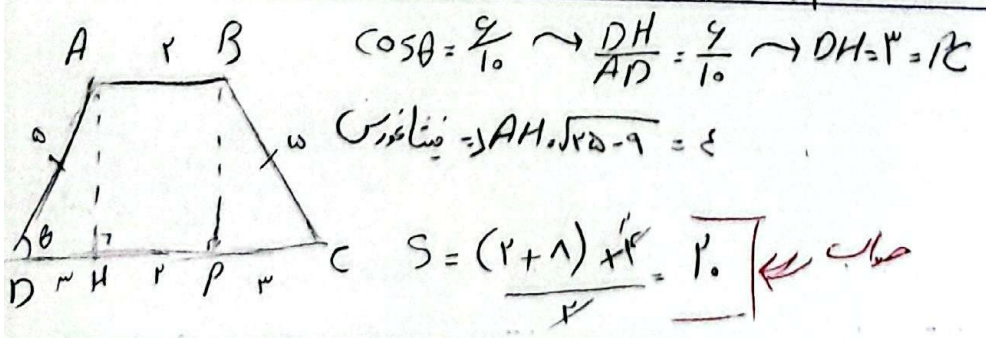 A ۲ B
cosθ = ۶/۱۰ ⤳ DH/AD = ۶/۱۰ ⤳ DH = ۳ = PC
۵ ۵
فیثاغورس ⇒ AH = √۲۵-۹ = ٤
θ
D ۳ H ۲ P ۳ C
S = (۲+۸) × ۴ / ۲ = ۲۰ جواب